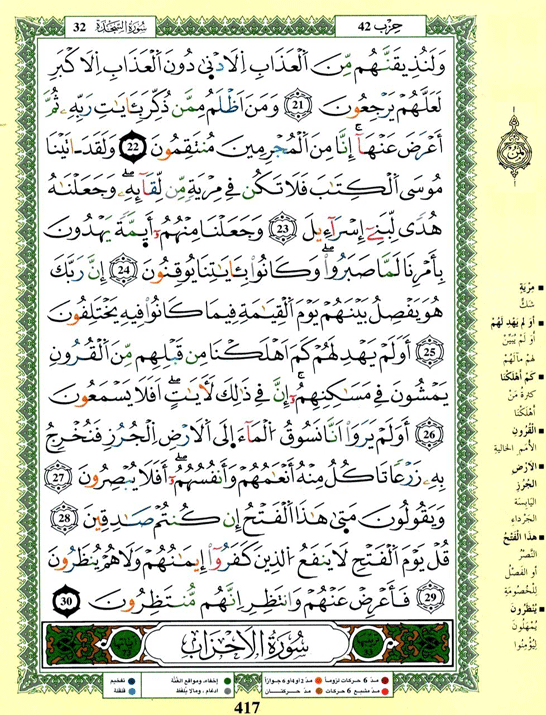 32 سُورَةُ السَّجْدَة
حِزْب 42
وَلَنُذِيقَنَّهُم مِّنَ ٱلْعَذَابِ ٱلَادْنَىٰ دُونَ ٱلْعَذَابِ ٱلَاكْبَرِ
لَعَلَّهُمْ يَرْجِعُونَ 21 وَمَنَ اَظْلَمُ مِمَّن ذُكِّرَ بِـَٔايَٰتِ رَبِّهِۦ ثُمَّ
أَعْرَضَ عَنْهَآ إِنَّا مِنَ ٱلْمُجْرِمِينَ مُنتَقِمُونَ 22 وَلَقَدَ ـاتَيْنَا
مُوسَى ٱلْكِتَٰبَ فَلَا تَكُن فِى مِرْيَةٍ مِّن لِّقَآئِهِۦ وَجَعَلْنَٰهُ
هُدًى لِّبَنِىٓ إِسْرَآءِيلَ 23 وَجَعَلْنَا مِنْهُمُۥٓ أَيِمَّةً يَهْدُونَ
بِأَمْرِنَا لَمَّا صَبَرُواْ وَكَانُواْ بِـَٔايَٰتِنَا يُوقِنُونَ 24 إِنَّ رَبَّكَ
هُوَ يَفْصِلُ بَيْنَهُمْ يَوْمَ ٱلْقِيَٰمَةِ فِيمَا كَانُواْ فِيهِ يَخْتَلِفُونَ
25 أَوَلَمْ يَهْدِ لَهُمْ كَمَ اَهْلَكْنَا مِن قَبْلِهِم مِّنَ ٱلْقُرُونِ
يَمْشُونَ فِى مَسَٰكِنِهِمُۥٓ إِنَّ فِى ذَٰلِكَ لَأٓيَٰتٍ اَفَلَا يَسْمَعُونَ
26 أَوَلَمْ يَرَوَاْ اَنَّا نَسُوقُ ٱلْمَآءَ إِلَى ٱلَارْضِ ٱلْجُرُزِ فَنُخْرِجُ
بِهِۦ زَرْعًا تَاكُلُ مِنْهُ أَنْعَٰمُهُمْ وَأَنفُسُهُمُۥٓ أَفَلَا يُبْصِرُونَ 27
وَيَقُولُونَ مَتَىٰ هَٰذَا ٱلْفَتْحُ إِن كُنتُمْ صَٰدِقِينَ 28
قُلْ يَوْمَ ٱلْفَتْحِ لَا يَنفَعُ ٱلذِينَ كَفَرُوٓاْ إِيمَٰنُهُمْ وَلَا هُمْ يُنظَرُونَ
29 فَأَعْرِضْ عَنْهُمْ وَانتَظِرِ اِنَّهُم مُّنتَظِرُونَ 30
سُورَةُ الْأَحْزَابِ
مِرْيَةٍ
شَكٍّ
أَوَ لَمْ يَهْدِ لَهُمْ
أَوَ لَمْ يُبَيِّنْ
لَهُمْ مَآلَهُمْ
كَمْ أَهْلَكْنَا
كَثْرَةَ مَنْ
أَهْلَكْنَا
الْقُرُونِ
الأُمَمِ الخالِيةِ
الأَرْضِ
الجُرُزِ
اليَابِسَةِ
الجَرْداءِ
هذَا الْفَتْحُ
النَّصْرُ
أو الفَصْلُ
لِلْخُصُومَةِ
يُنْظَرُونَ
يُمْهَلُونَ
لِيُؤْمِنُوا
مدّ 6 حركات لزوماً
مدّ 2 أو 4 أو 6 جوازاً
إخفاء، ومواقع الغُنَّة
تفخيم
مدّ مشبع 6 حركات
مدّ حركتـان
ادغام، ومالا يُلفَظ
قلقلة
417